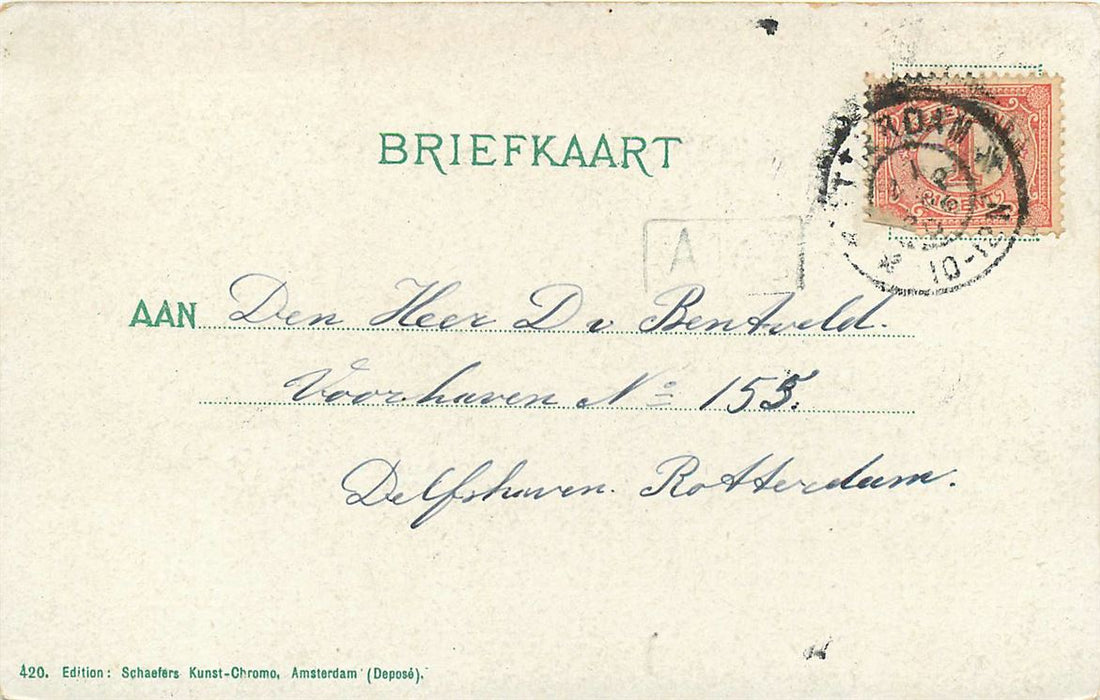 BRIEFKAART
1
A
AAN Den Heer D v Bentveld.
Voorhaven No 155.
Delfshaven. Rotterdam.
420. Edition: Schaefers Kunst-Chromo, Amsterdam (Deposé).